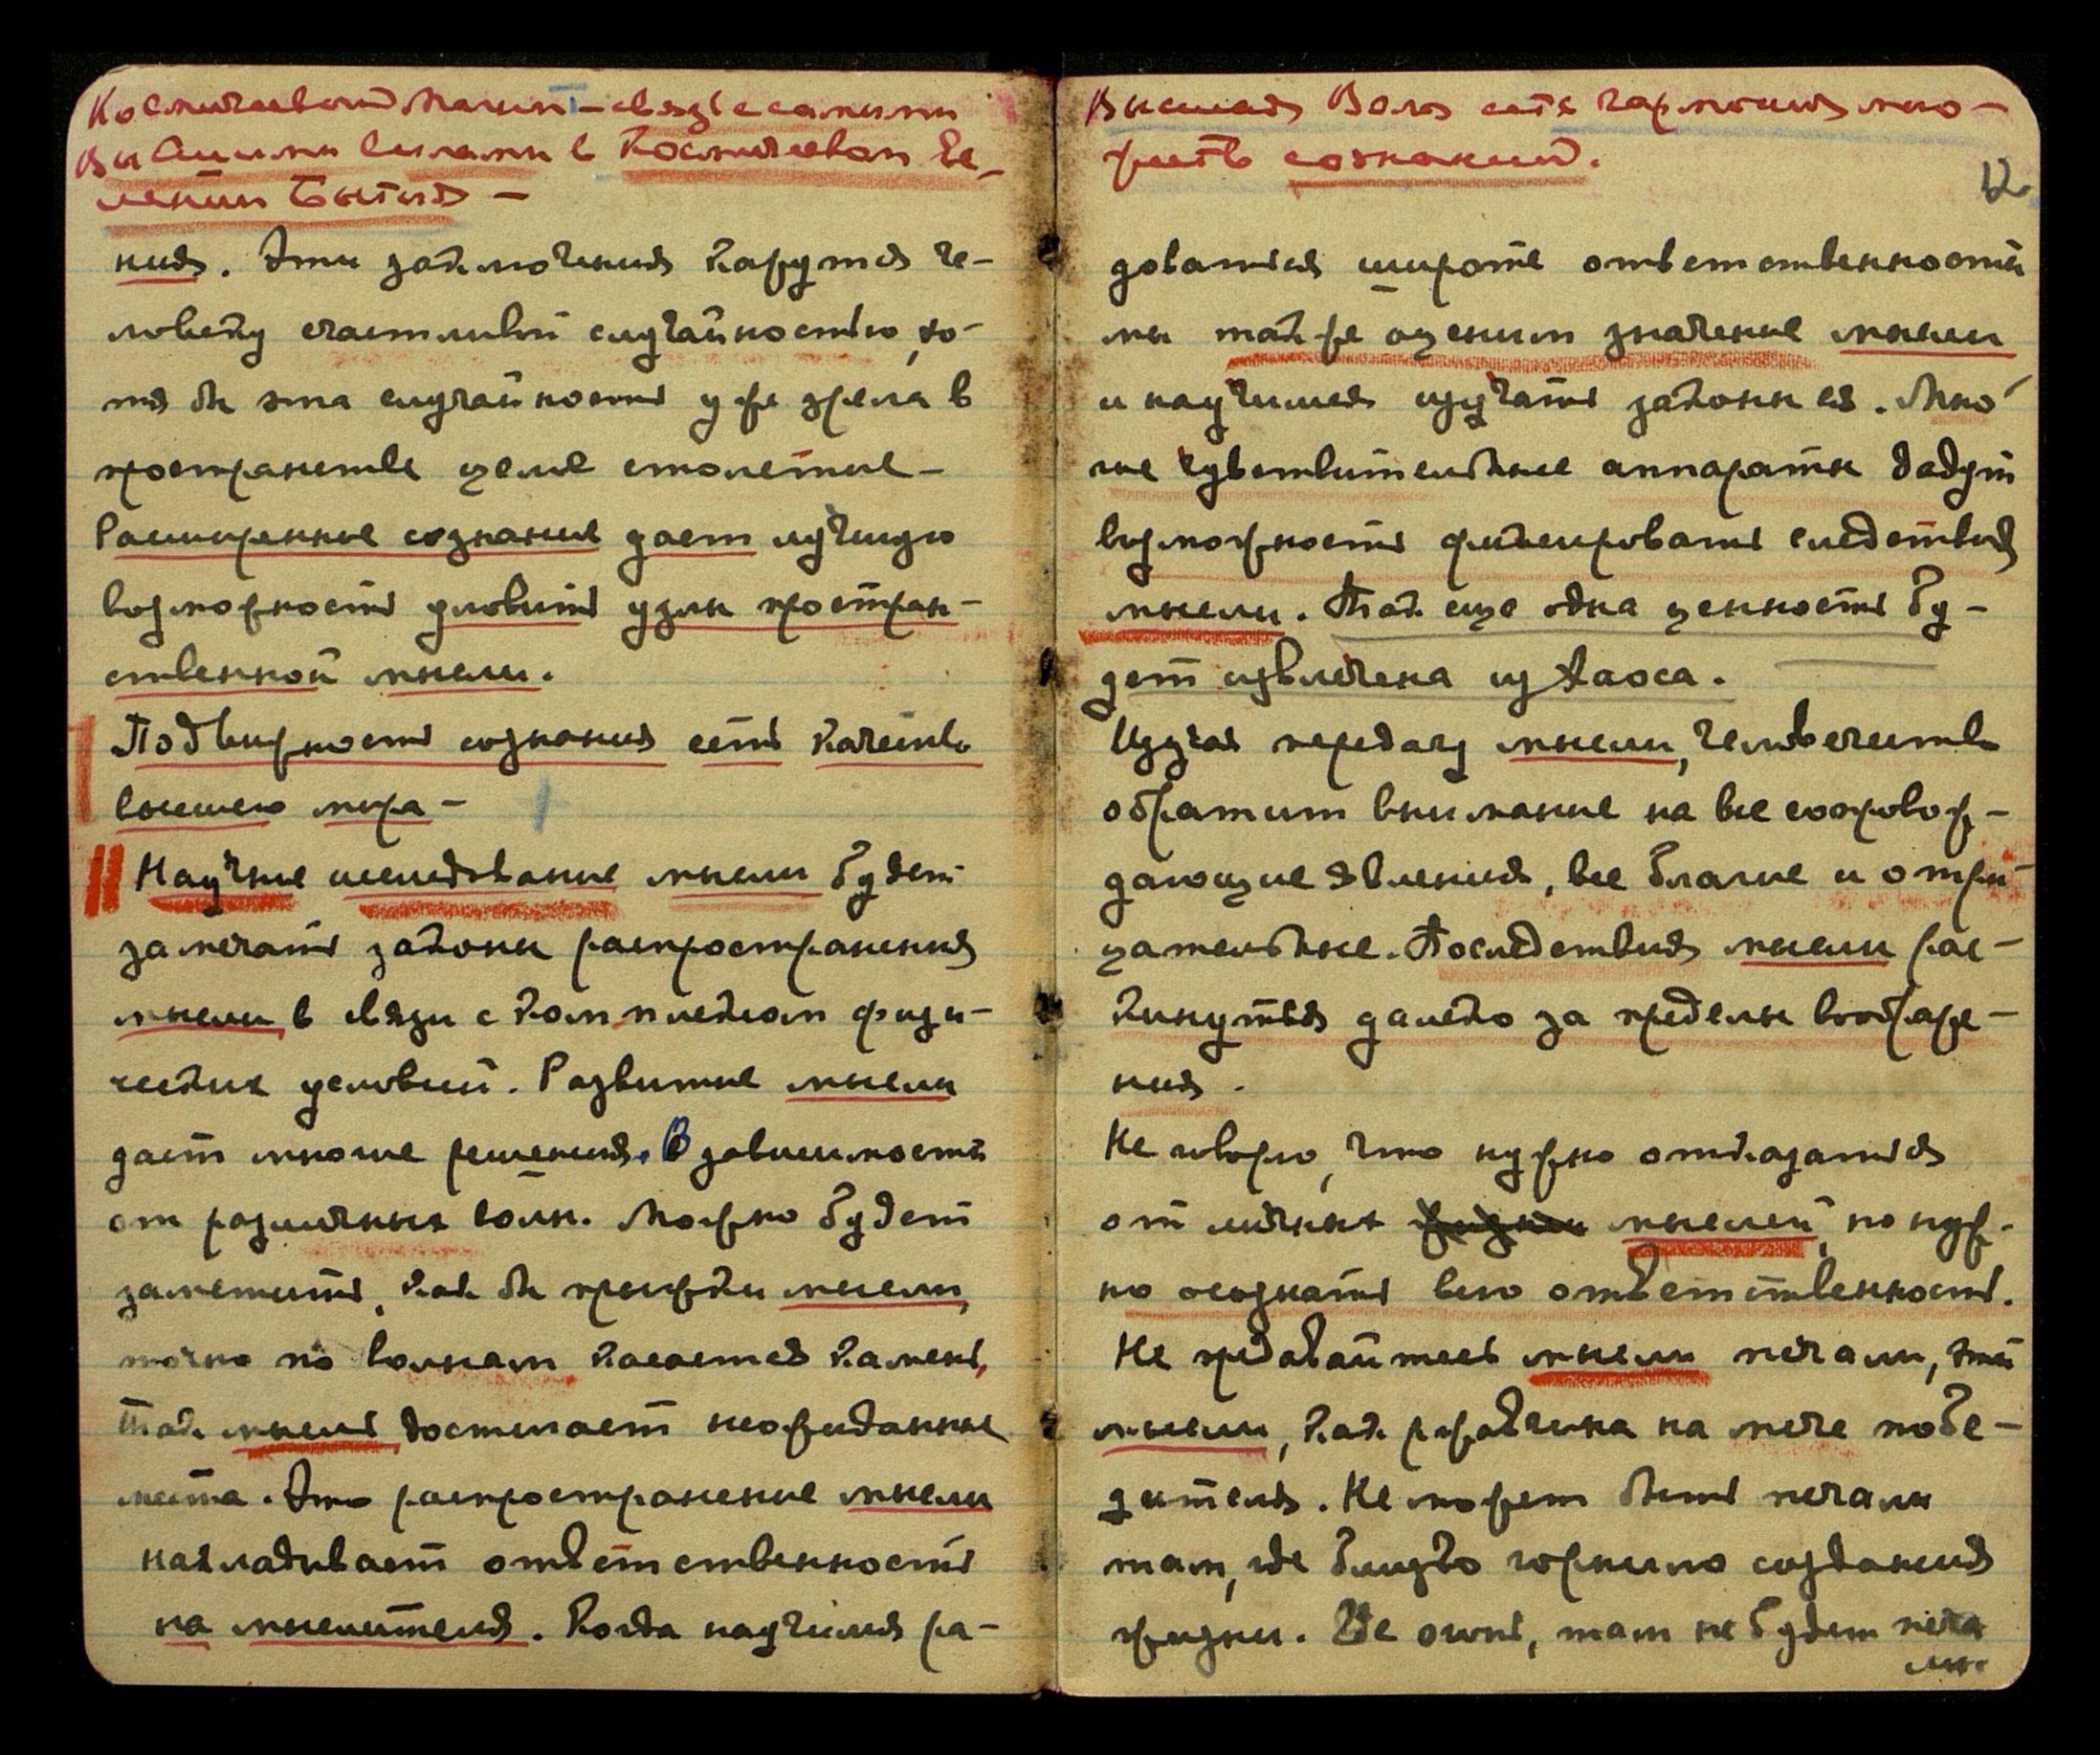 Космический Магнит – связь с самыми
Высшими силами в Космическом Ве-
лении Бытия –
ния. Эти заключения кажутся че-
ловеку счастливой случайностью, хо-
тя бы эта случайность уже зрела в
пространстве целые столетие –
Расширенные сознание дает лучшую
возможность уловить узлы простран-
ственной мысли.
Подвижность сознания есть качество
высшего мира –
Научные исследования мысли будет
замечать законы распространения
мысли в связи с комплексом физи-
ческих условий. Развитие мысли
дает многие решения. В зависимости
от различных волн. Можно будет
заметить, как бы прыжки мысли,
точно по волнам касается камень,
так мысль достигает неожиданные
места. Это распространение мысли
накладывает ответственность
на мыслителя. Когда научимся ра-
Высшая Воля есть гармония мно-
жеств сознаний.
12
доваться широте ответственности
мы также оценим значение мысли
и научимся изучать законы ея. Мно-
гие чувствительные аппараты дадут
возможность фиксировать следствия
мысли. Так еще одна ценность бу-
дет извлечена из Хаоса.
Изучая передачу мысли, человечество
обратит внимание на все сопровож-
дающие явления, все благие и отри-
цательные. Последствия мысли рас-
кинутся далеко за пределы воображе-
ния.
Не говорю, что нужно отказаться
от личных мыслей, но нуж-
но осознать всю ответственность.
Не предавайтесь мысли печали, эти
мысли, как ржавчина на мече побе-
дителя. Не может быть печали
там, где близко горнило создания
жизни. Где огонь, там не будет печа
ли.